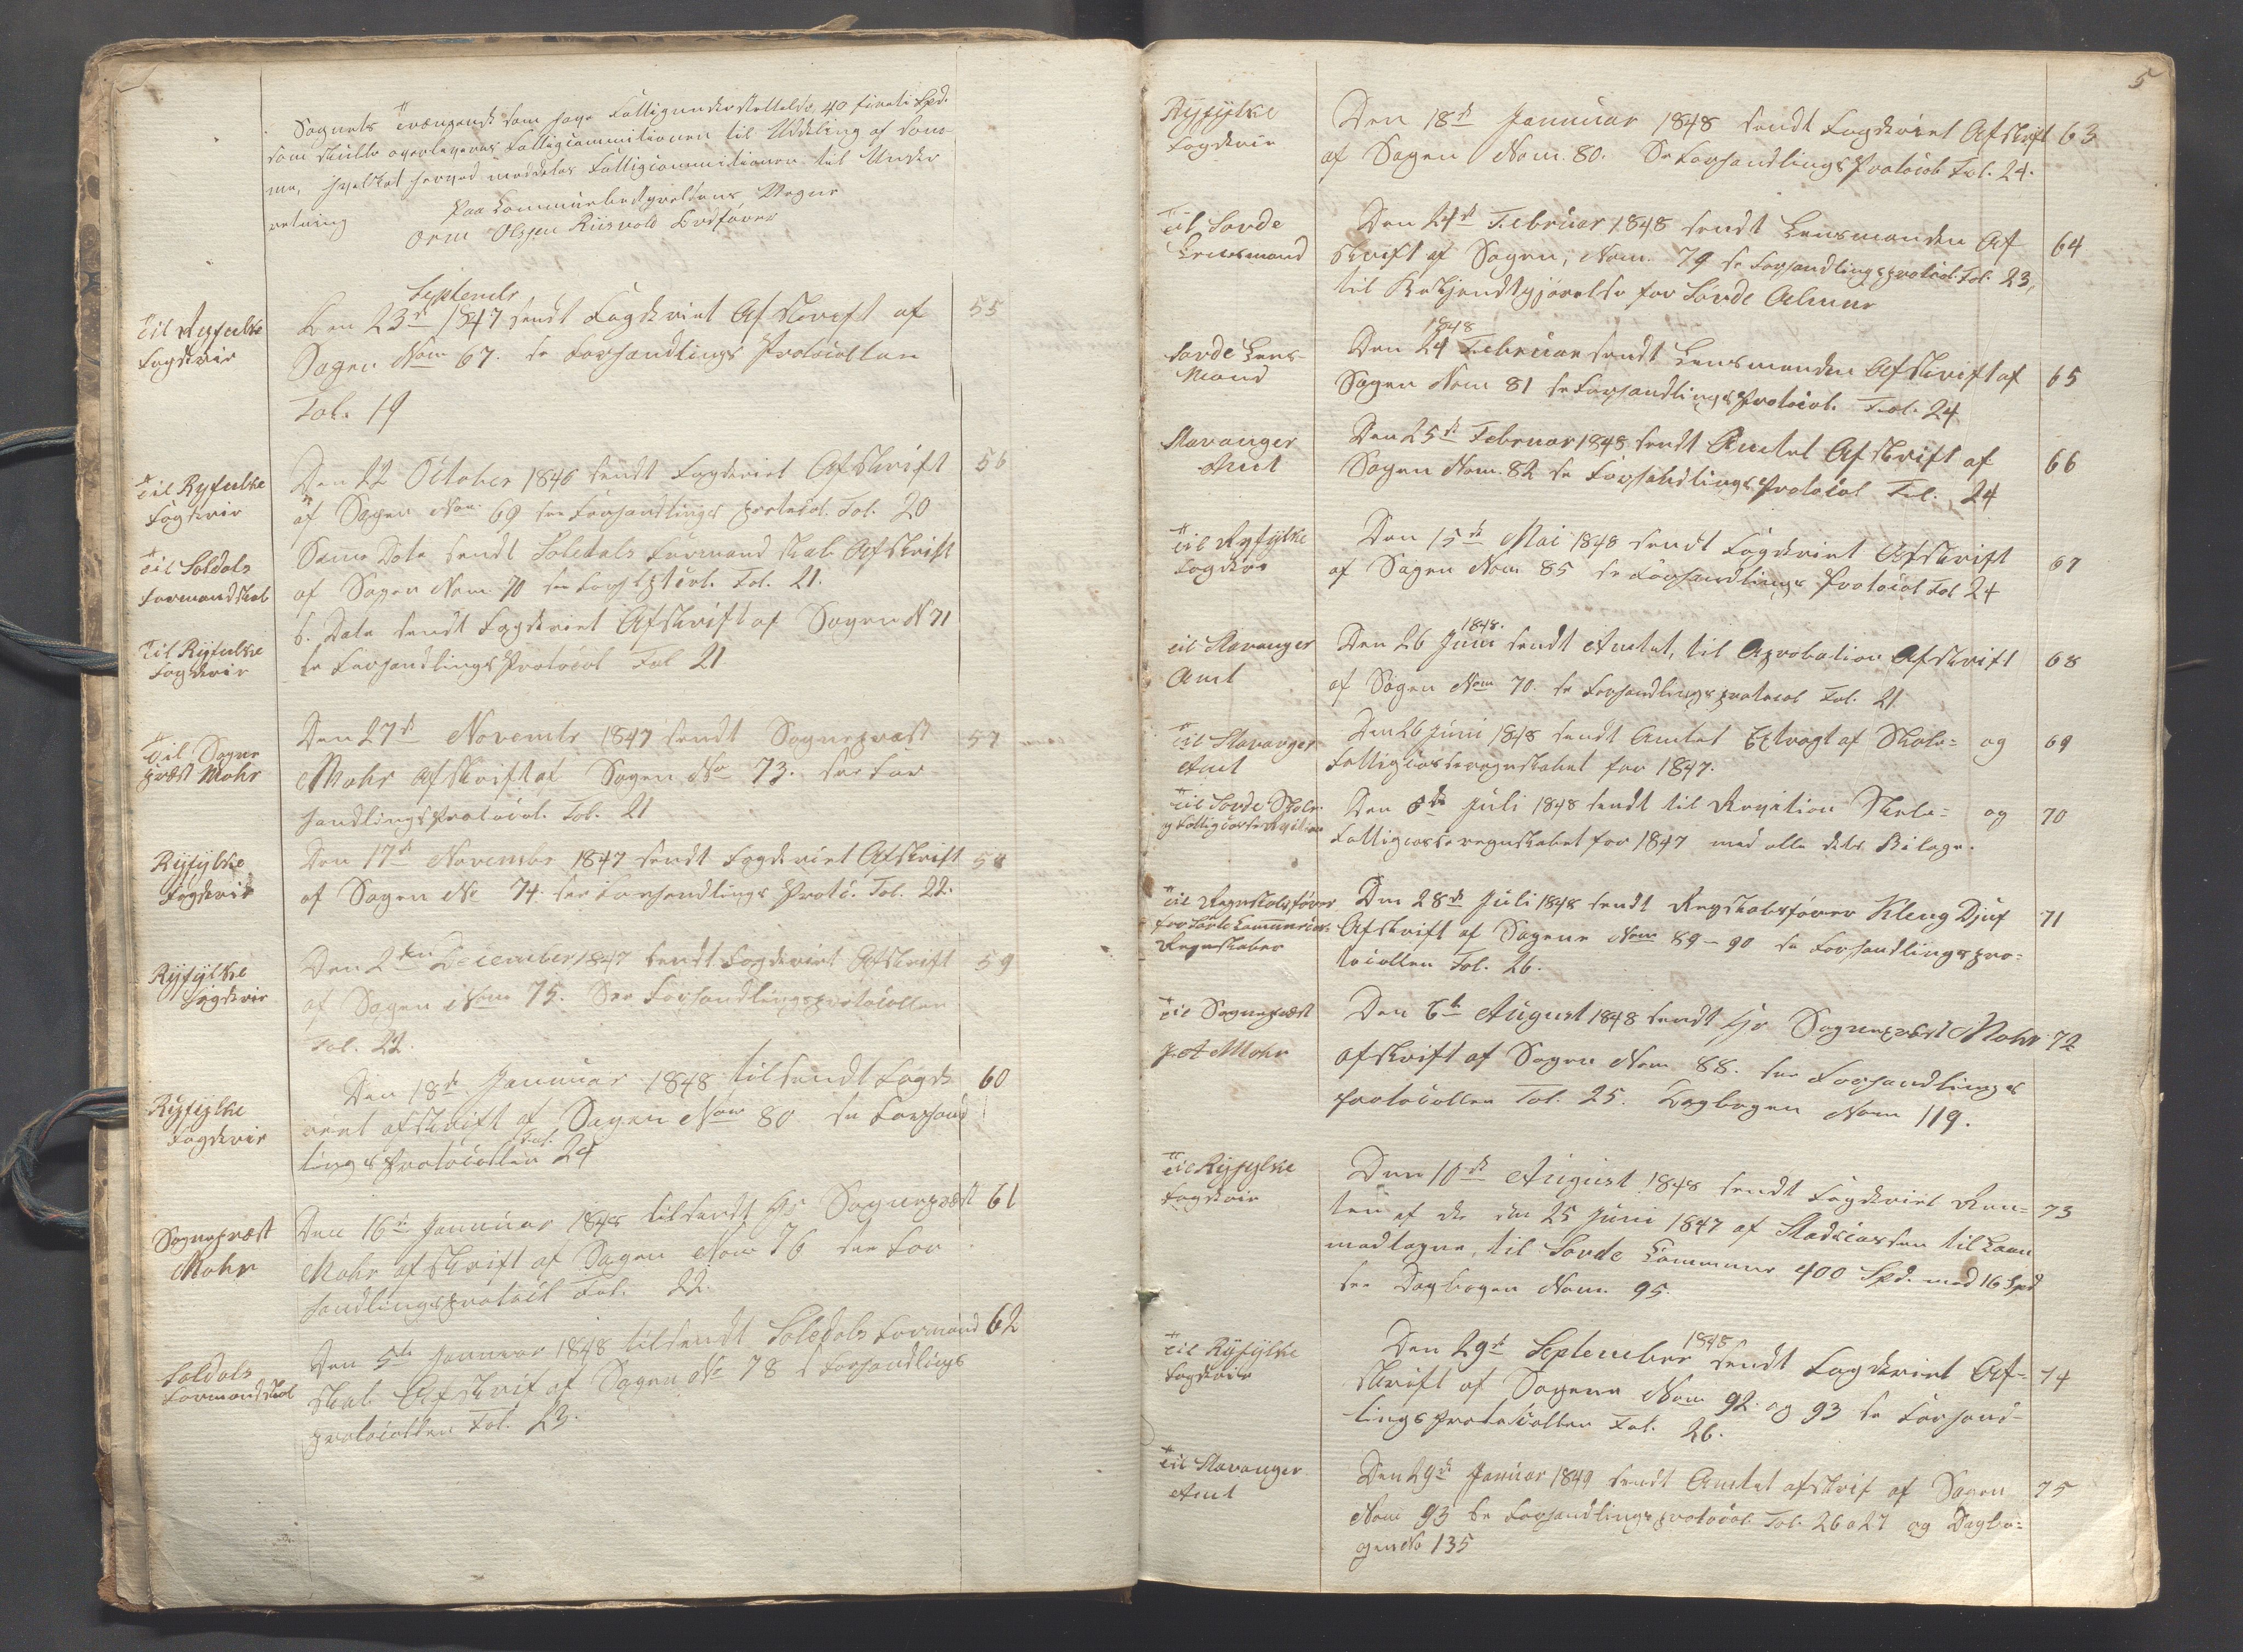 Sognets trængende som søge Fattigunderstøttelse, 40 fireti Spd.
som skulle overleveres Fattigcommitionen til Uddeling af sam-
me, hvilket herved meddeles Fattigcommitionen til Under
retning
Paa Commünebestyrelsens Vegne
Orm Olsen Riisvold Ordfører
Til Ryfulke
Fogderie
Septembr
Den 23de 1847 sendt Fogderiet Afskrevft af
Sagen Nom 67. se Forhandlings Protocollen
Fol. 19
55
Til Ryfulke
Fogderie
Den 22 October 1846 sendt Fogderiet Afskrift
af Sagen Nom 69 see Forhandlings protocol. Fol. 20
56
Til Soldals
Formandskab
Samme Date sendt Soledals Formandskab Afskrift
af Sagen Nom 70 see Forh.ptcol. Fol. 21.
Til Ryfulke
Fogderie
S. Date sendt Fogderiet Afskrift af Sagen N 71
se Forhandlings Protocol Fol 21
Til Sogne
præst Mohr
Den 27de Novembr 1847 sendt Sognepræst
Mohr afskrift af Sagen No 73. see For
handlingsprotocol. Fol. 21
57
Ryfylke
Fogderie
Den 17de Novembr 1847 sendt Fogderiet Afskrift
af Sagen No 74. see Forhandlings Protc. Fol. 22.
58
Ryfylke
Fogderie
Den 2den December 1847 sendt Fogderiet Afskrift
af Sagen Nom 75. See Forhandlingsprotocollen
Fol. 22.
59
Ryfylke
Fogderie
Den 18de Januar 1848 tilsendt Fogde
riet afskrift af Sagen Nom 80 se Forhand
lings Protocollen Fol. 24
60
Sognepræst
Mohr
Den 16de Januar 1848 tilsendt Hr Sognepræst
Mohr afskrift af Sagen Nom 76 see For
handlingsprotocl Fol. 22.
61
Soldals
Formandskab
Den 5te Januar 1848 tilsendt Soledals Formand
skab Afskrift af Sagen No 78 s Forhandlings
protocollen Fol. 23.
62
5
Ryfylke
Fogderie
Den 18de Januar 1848 sendt Fogderiet Afskrift
af Sagen Nom. 80. Se Forhandlings Protocol Fol. 24.
63
Til Sovde
Lensmand
Den 24de Februar 1848 sendt Lensmanden Af
skrift af Sagen, Nom. 79 se Forhandlingsprotocol. Fol. 23,
til Bekjendtgjørelse for Sovde Almue
64
Sovde Lens-
Mand
1848
Den 24 Februar sendt Lensmanden Afskrift af
Sagen Nom 81 se Forhandlings Protocol. Fol. 24
65
Stavanger
Amt
Den 25de Februar 1848 sendt Amtet Afskrift af
Sagen Nom. 82 se Forhandlings Protocol Fol. 24
66
Til Ryfylke
Fogderie
Den 15de Mai 1848 sendt Fogderiet Afskrift
af Sagen Nom 85 se Forhandlings Protocol Fol 24
67
Til Stavanger
Amt
1848.
Den 26 Juni sendt Amtet, til Aprobation Afskrift
af Sagen Nom 70. se Forhandlingsprotocol Fol. 21
68
Til Stavanger
Amt
Den 26 Juni 1848 sendt Amtet Extragt af Skole= og
Fattigcasseregnskabet for 1847.
69
Til Sovde Skole
og Fattigcasse Revition
Den 6de Juli 1848 sendt til Revition Skole= og
Fattigcasseregnskabet for 1847 med alle dets Bilage.
70
Til Regnskabsfører
for Sovde Communens
Regnskaber
Den 28de Juli 1848 sendt Regskabsfører Kleng Djuf
Afskrift af Sagene Nom 89-90 se Forhandlingspro=
tocollen Fol. 26.
71
Til Sognepræst
Mohr
Den 6te August 1848 sendt Hr Sognepræst Mohr
afskrift af Sagen Nom 88. see Forhandlings
protocollen Fol. 25. Dagbogen Nom 119.
72
Til Ryfylke
Fogderie
Den 10de August 1848 sendt Fogderiet Ren=
ten af de den 25 Juni 1847 af Stadscassen til Laan
modtagne, til Sovde Commune 400 Spd. med 16 Spd
see Dagbogen Nom. 95.
73
Til Ryfylke
Fogderie
1848
Den 29de September sendt Fogderiet Af=
skrift af Sagene Nom 92. og 93 se Forhand-
lingsprotocollen Fol. 26.
74
Til Stavanger
Amt
Den 29de Januar 1849 sendt Amtet afskrif af Sagen
Nom 93 se Forhandlingsprotocol. Fol. 26 a 27 og Dagbo=
gen No 135
75